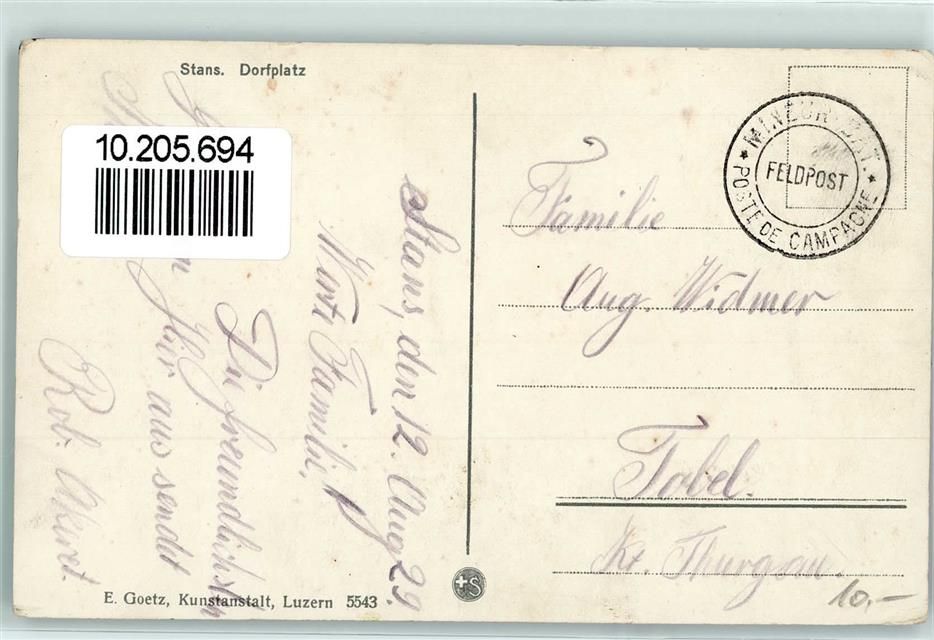 Stans. Dorfplatz
10.205.694
MINEUR BAT.
FELDPOST
POSTE DE CAMPAGNE
Stans, den 12. Aug 29.
Werte Familie!
Die freundlichsten
von hier aus sendet
Rob. Akeret
Familie
Aug. Widmer
Tobel.
Kt. Thurgau.
10.–
E. Goetz, Kunstanstalt, Luzern 5543